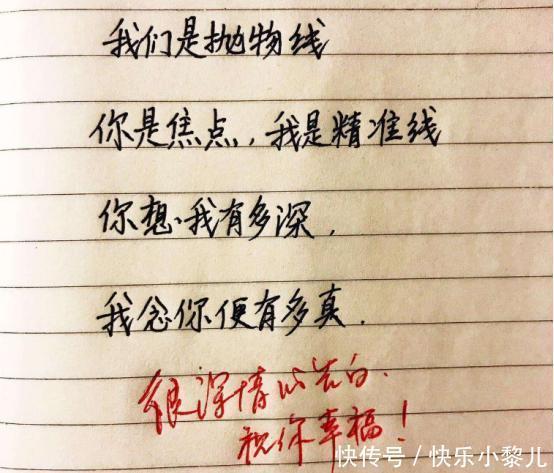 我们是抛物线
你是焦点，我是精准线
你想我有多深，
我念你便有多真．
很深情的告白．
祝你幸福！
快传号／快乐小黎儿